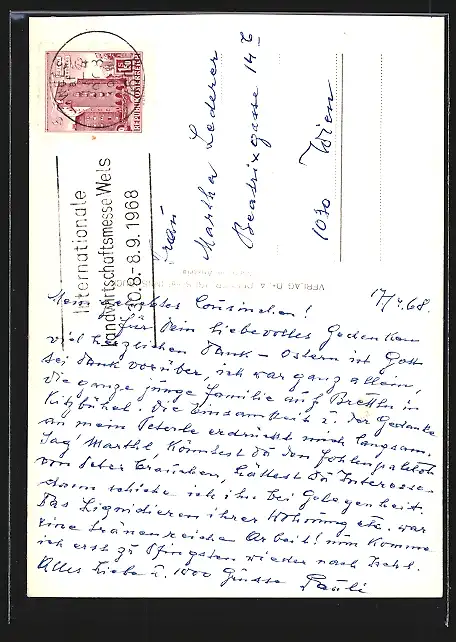 Internationale
Landwirtschaftsmesse Wels
30.8.-8.9.1968
REPUBLIK ÖSTERREICH
Frau
Martha Lederer
Beatrixgasse 14
1030 Wien
VERLAG
17/4.68.
Mein Cousinchen!
Für Dein liebevolles Gedenken
viel herzlichen Dank – Ostern ist Gott
sei Dank vorüber, ich war ganz allein,
die ganze junge Familie auf Brettln in
Kitzbühel. Die Einsamkeit u. der Gedanke
an mein Peterle erdrückt mich langsam.
Sag' Marthl, könntest Du den
von Peter brauchen, hättest Du Interesse
dann schicke ich ihn bei Gelegenheit.
Das Liquidieren ihrer Wohnung etc. war
eine tränenreiche Arbeit! nun komme
ich erst zu Pfingsten wieder nach
Alles Liebe u. 1000 Grüsse Pauli